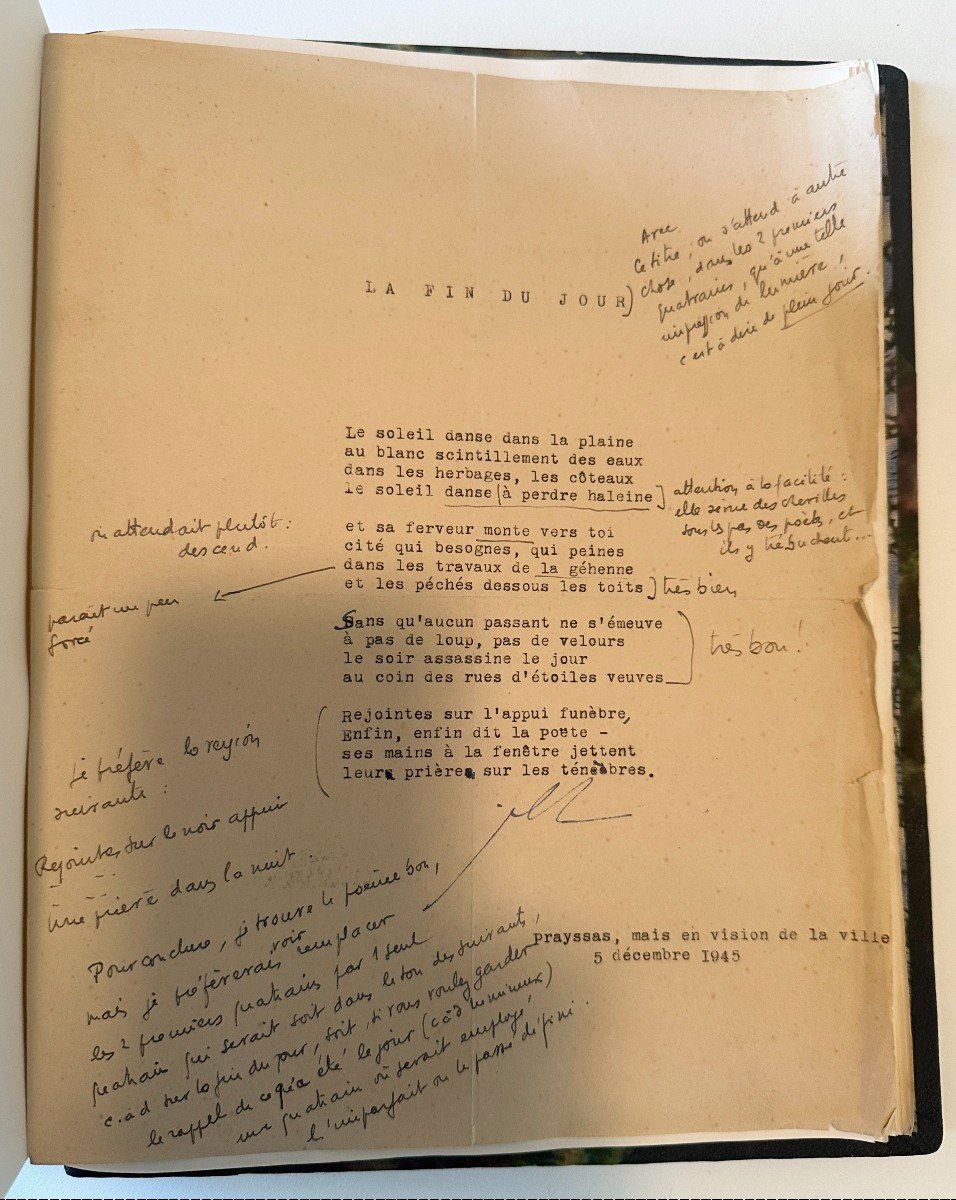 Avec
ce titre, on s'attend à autre
chose, dans les 2 premiers
quatrains, qu'à une telle
impression de lumière,
c'est à dire de plein jour.
LA FIN DU JOUR)
Le soleil danse dans la plaine
au blanc scintillement des eaux
dans les herbages, les côteaux
le soleil danse (à perdre haleine]
attention à la facilité :
elle sème des chevilles
sous les pas des poètes, et
ils y trébuchent...
on attendait plutôt :
descend.
et sa ferveur monte vers toi
cité qui besognes, qui peines
dans les travaux de la géhenne
et les péchés dessous les toits) très bien
paraît un peu
forcé
Sans qu'aucun passant ne s'émeuve
à pas de loup, pas de velours
le soir assassine le jour
au coin des rues d'étoiles veuves
très bon !
Rejointes sur l'appui funèbre,
Enfin, enfin dit la poète -
ses mains à la fenêtre jettent
leurs prières sur les ténèbres.
je préfère la
suivante :
Rejointes sur le noir appui
Une prière dans la nuit.
Pour conclure, je trouve le poème bon,
mais je préfèrerais voir remplacer
les 2 premiers quatrains par 1 seul
quatrain qui serait soit dans le ton des suivants,
c.à d sur la fin du jour, soit, si vous voulez garder
le rappel de ce qu'a été le jour (càd lumineux)
un quatrain où serait employé
l'imparfait ou le passé défini.
Prayssas, mais en vision de la ville
5 décembre 1945